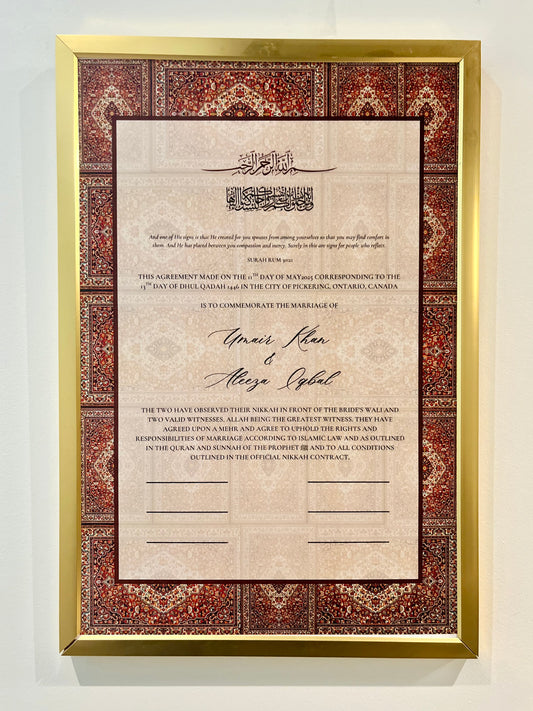 بسم الله الرحمن الرحيم
And one of His signs is that He created for you spouses from among yourselves so that you may find comfort in
them. And He has placed between you compassion and mercy. Surely in this are signs for people who reflect.
SURAH RUM 30:21
THIS AGREEMENT MADE ON THE 11TH DAY OF MAY2025 CORRESPONDING TO THE
13TH DAY OF DHUL QADAH 1446 IN THE CITY OF PICKERING, ONTARIO, CANADA
IS TO COMMEMORATE THE MARRIAGE OF
Umair Khan
&
Aleeza Iqbal
THE TWO HAVE OBSERVED THEIR NIKKAH IN FRONT OF THE BRIDE'S WALI AND
TWO VALID WITNESSES, ALLAH BEING THE GREATEST WITNESS. THEY HAVE
AGREED UPON A MEHR AND AGREE TO UPHOLD THE RIGHTS AND
RESPONSIBILITIES OF MARRIAGE ACCORDING TO ISLAMIC LAW AND AS OUTLINED
IN THE QURAN AND SUNNAH OF THE PROPHET ﷺ AND TO ALL CONDITIONS
OUTLINED IN THE OFFICIAL NIKKAH CONTRACT.